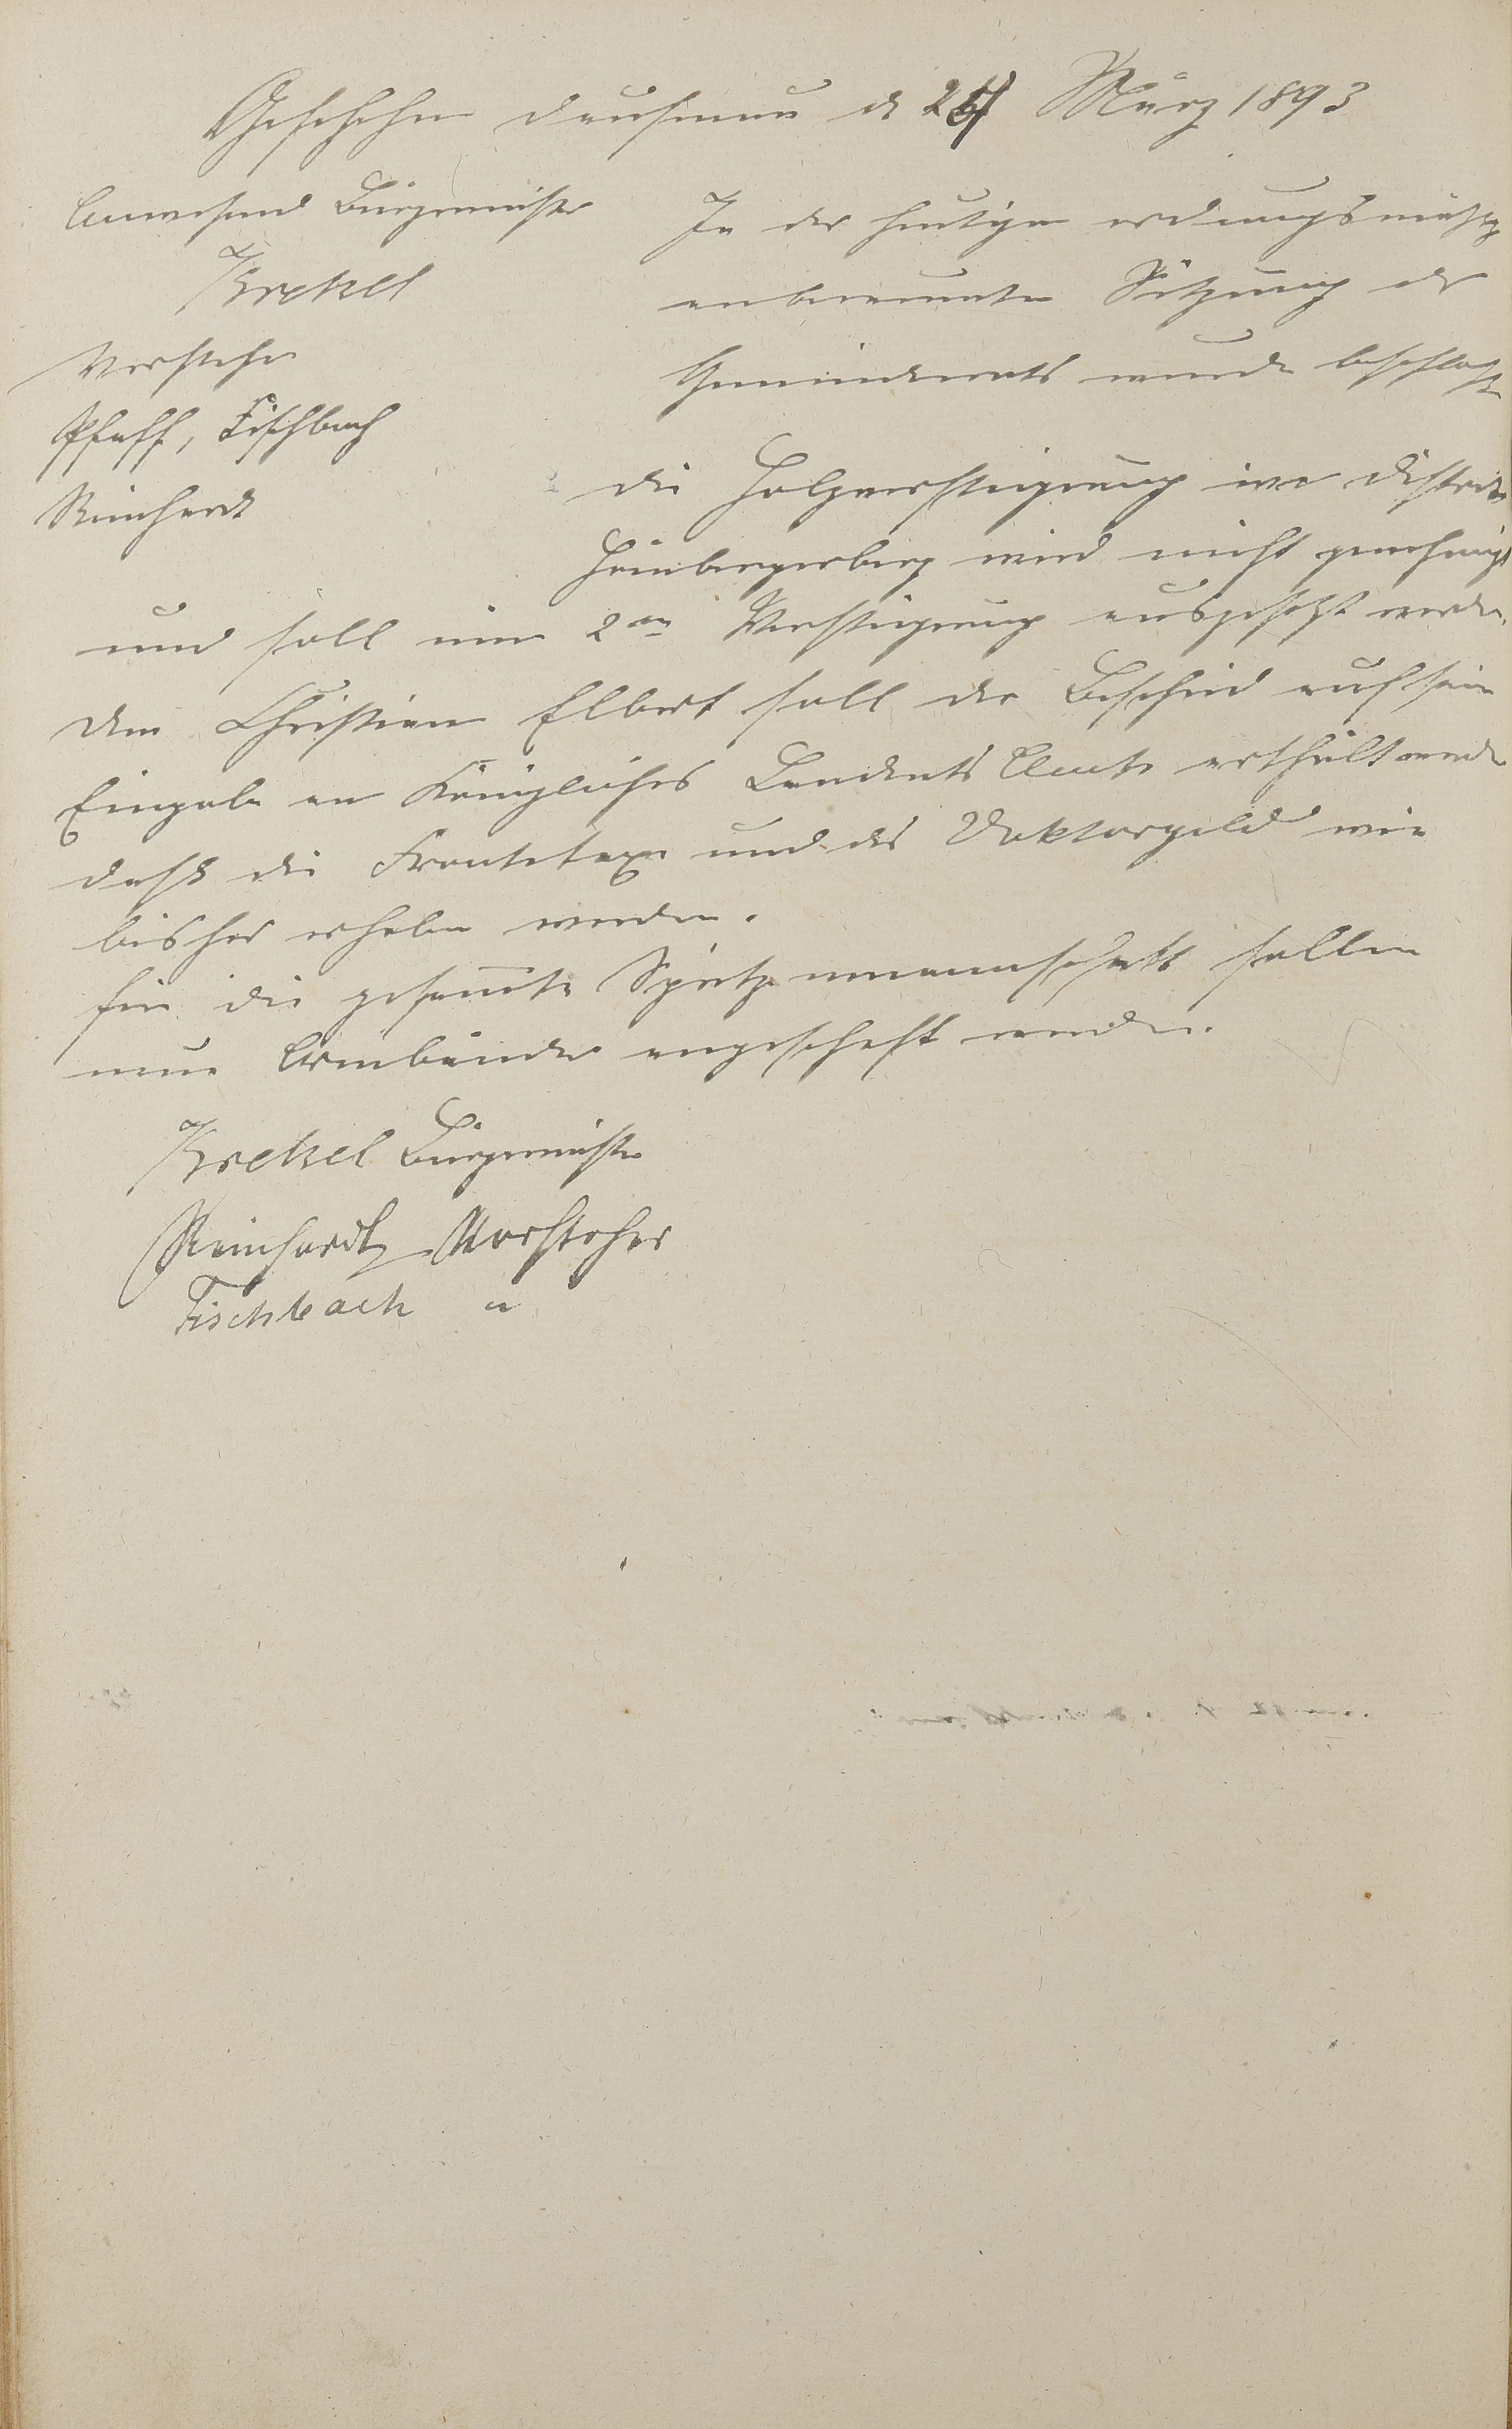 Geschehen Dausenau d 24 März 1893
Anwesend Bürgermeister
Krekel
Vorsteher
Pfaff, Fischbach
Reinhardt
In der heutigen ordnungsmäßig
anberaumten Sitzung des
Gemeinderaths wurde beschloßen
die Holzversteigerung im Distrikt
Hömbergerberg wird nicht genehmigt
und soll eine 2te Versteigerung ausgesetzt werden.
Dem Christian Elbert soll der Bescheid auf sein
Eingabe an Königliches Landraths Amte ertheilt werde
daß die und das Doktorgeld wie
bisher erhoben werden.
für die gesam̅te Spritzenmannschaft sollen
neue Armbänder angeschaft werden.
Krekel Bürgermeister
Reinhardt Vorsteher
Fischbach "